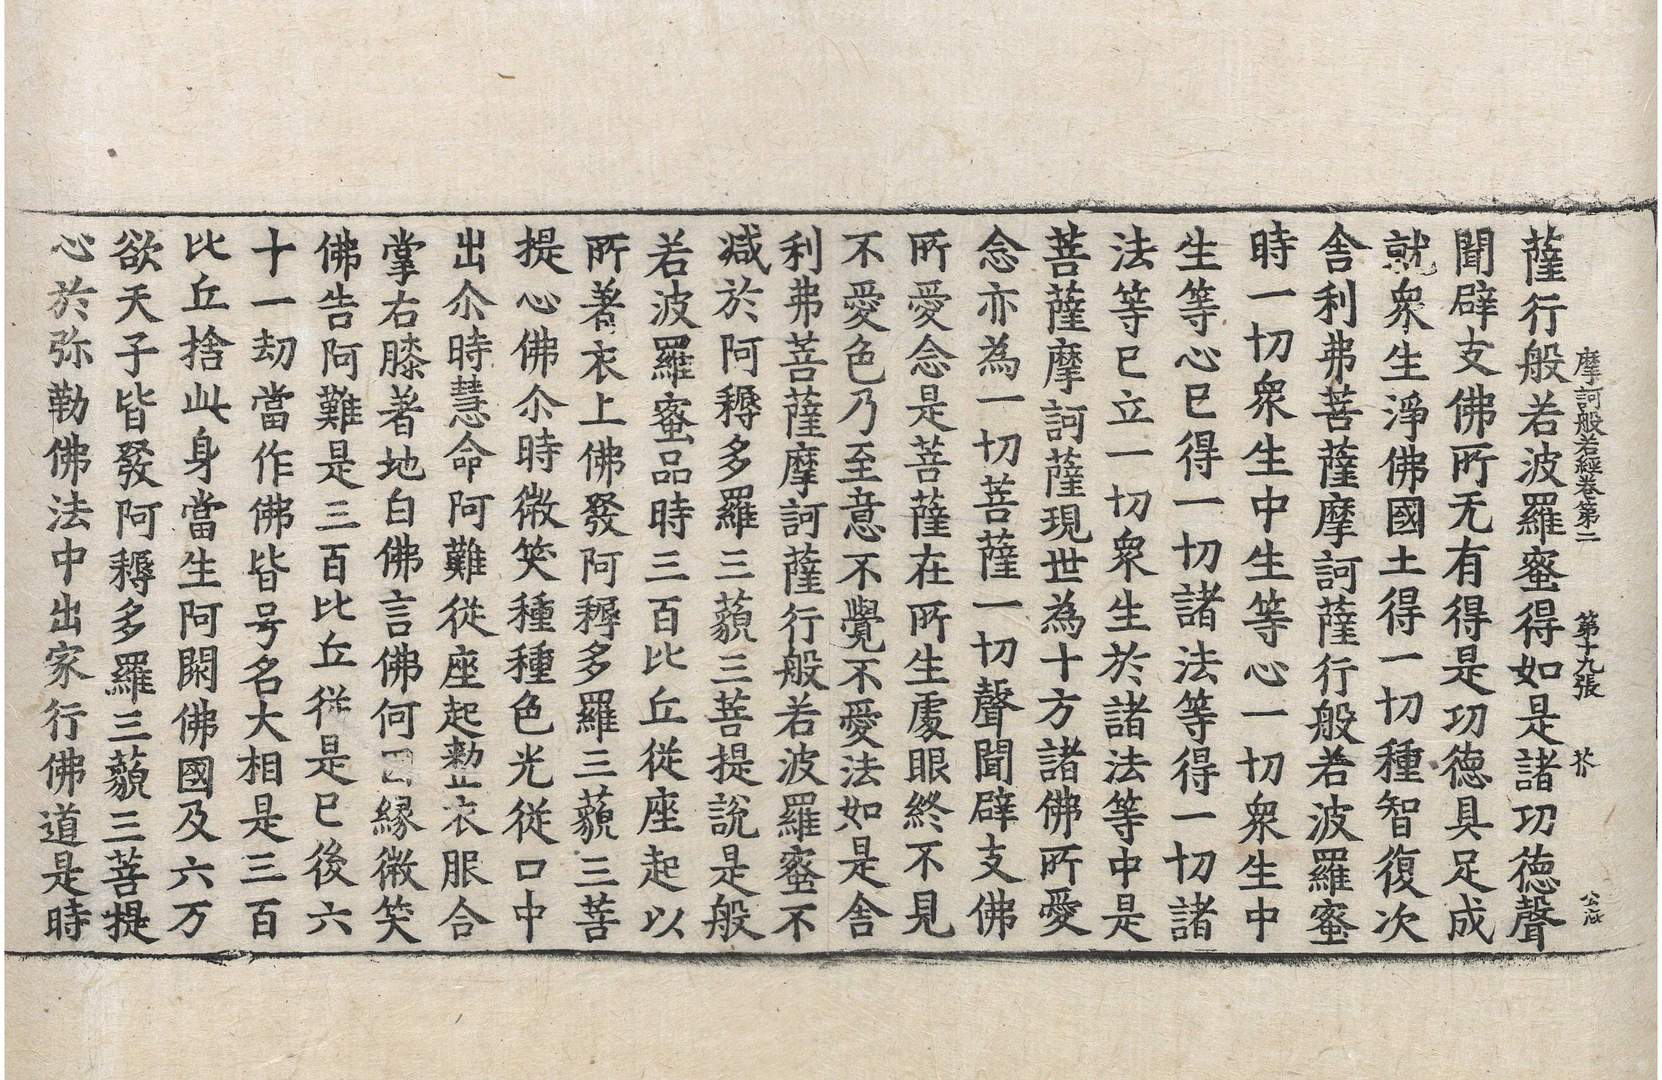 摩訶般若經卷第二 第十九張 芥
薩行般若波羅蜜得如是諸功德聲
聞辟支佛所无有得是功德具足成
就衆生淨佛國土得一切種智復次
舍利弗菩薩摩訶薩行般若波羅蜜
時一切衆生中生等心一切衆生中
生等心已得一切諸法等得一切諸
法等已立一切衆生於諸法等中是
菩薩摩訶薩現世為十方諸佛所愛
念亦為一切菩薩一切聲聞辟支佛
所愛念是菩薩在所生處眼終不見
不愛色乃至意不覺不愛法如是舍
利弗菩薩摩訶薩行般若波羅蜜不
减於阿耨多羅三藐三菩提說是般
若波羅蜜品時三百比丘從座起以
所著衣上佛發阿耨多羅三藐三菩
提心佛尒時微笑種種色光從口中
出尒時慧命阿難從座起懃衣服合
掌右膝著地白佛言佛何因緣微笑
佛告阿難是三百比丘從是已後六
十一劫當作佛皆号名大相是三百
比丘捨此身當生阿閦佛國及六万
欲天子皆發阿耨多羅三藐三菩提
心於弥勒佛法中出家行佛道是時